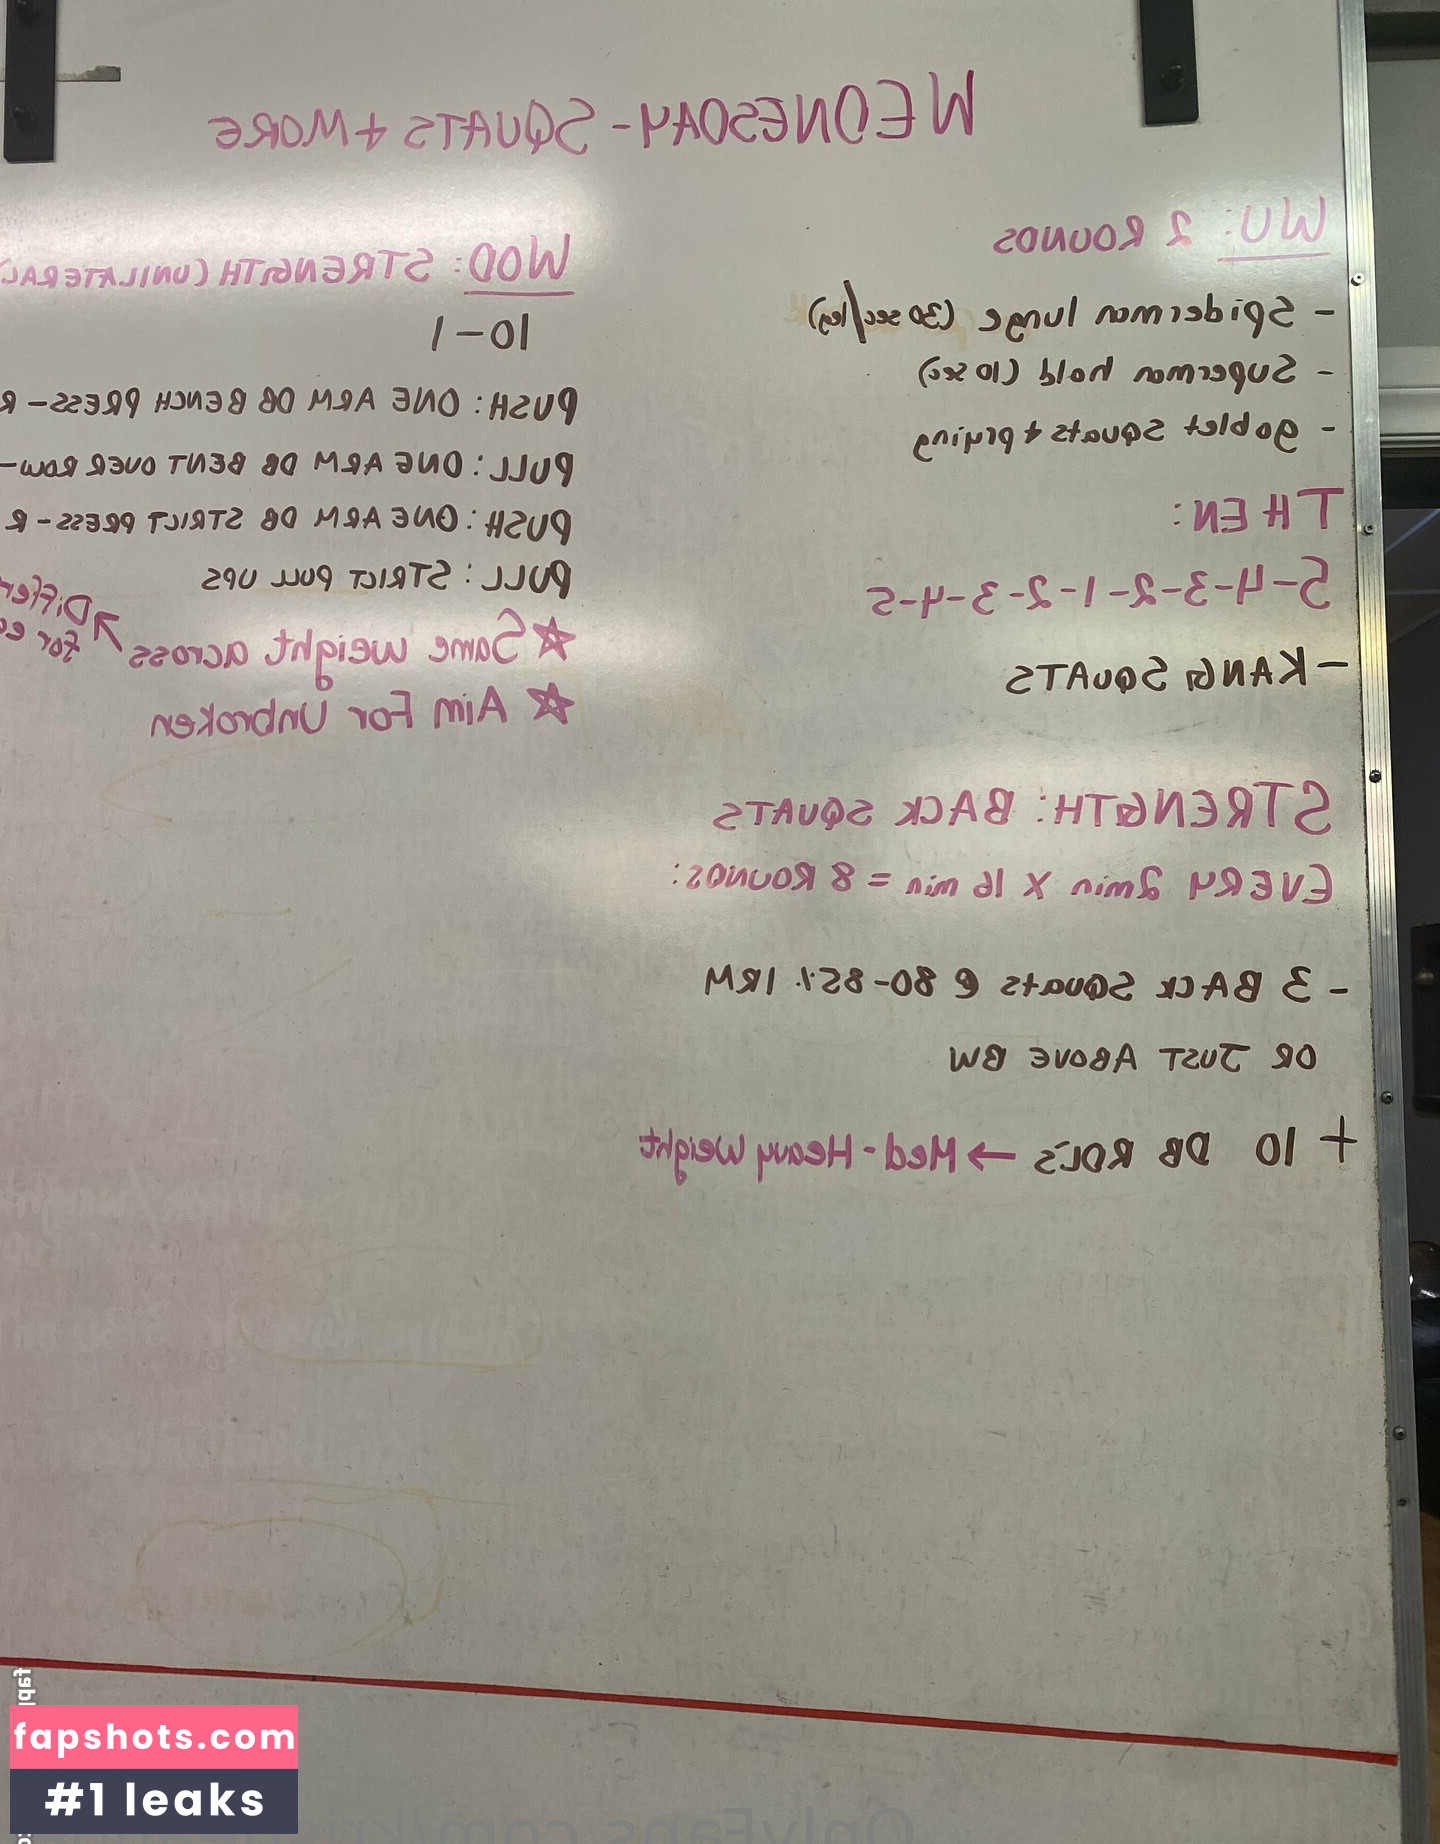 WEDNESDAY - SQUATS + MORE
WU: 2 ROUNDS
- Spiderman lunge (30 sec/leg)
- Superman hold (10 sec)
- goblet squats + prying
THEN:
5-4-3-2-1-2-3-4-5
- KANG SQUATS
STRENGTH: BACK SQUATS
EVERY 2min X 16 min = 8 ROUNDS:
- 3 BACK SQUATS @ 80-85% 1RM
OR JUST ABOVE BW
+ 10 DB RDL'S → Med-Heavy Weight
WOD: STRENGTH (UNILATERAL
10-1
PUSH: ONE ARM DB BENCH PRESS - R
PULL: ONE ARM DB BENT OVER ROW -
PUSH: ONE ARM DB STRICT PRESS - R
PULL: STRICT PULL UPS
☆ Same weight across ↗
☆ Aim For Unbroken
For
fapshots.com
#1 leaks